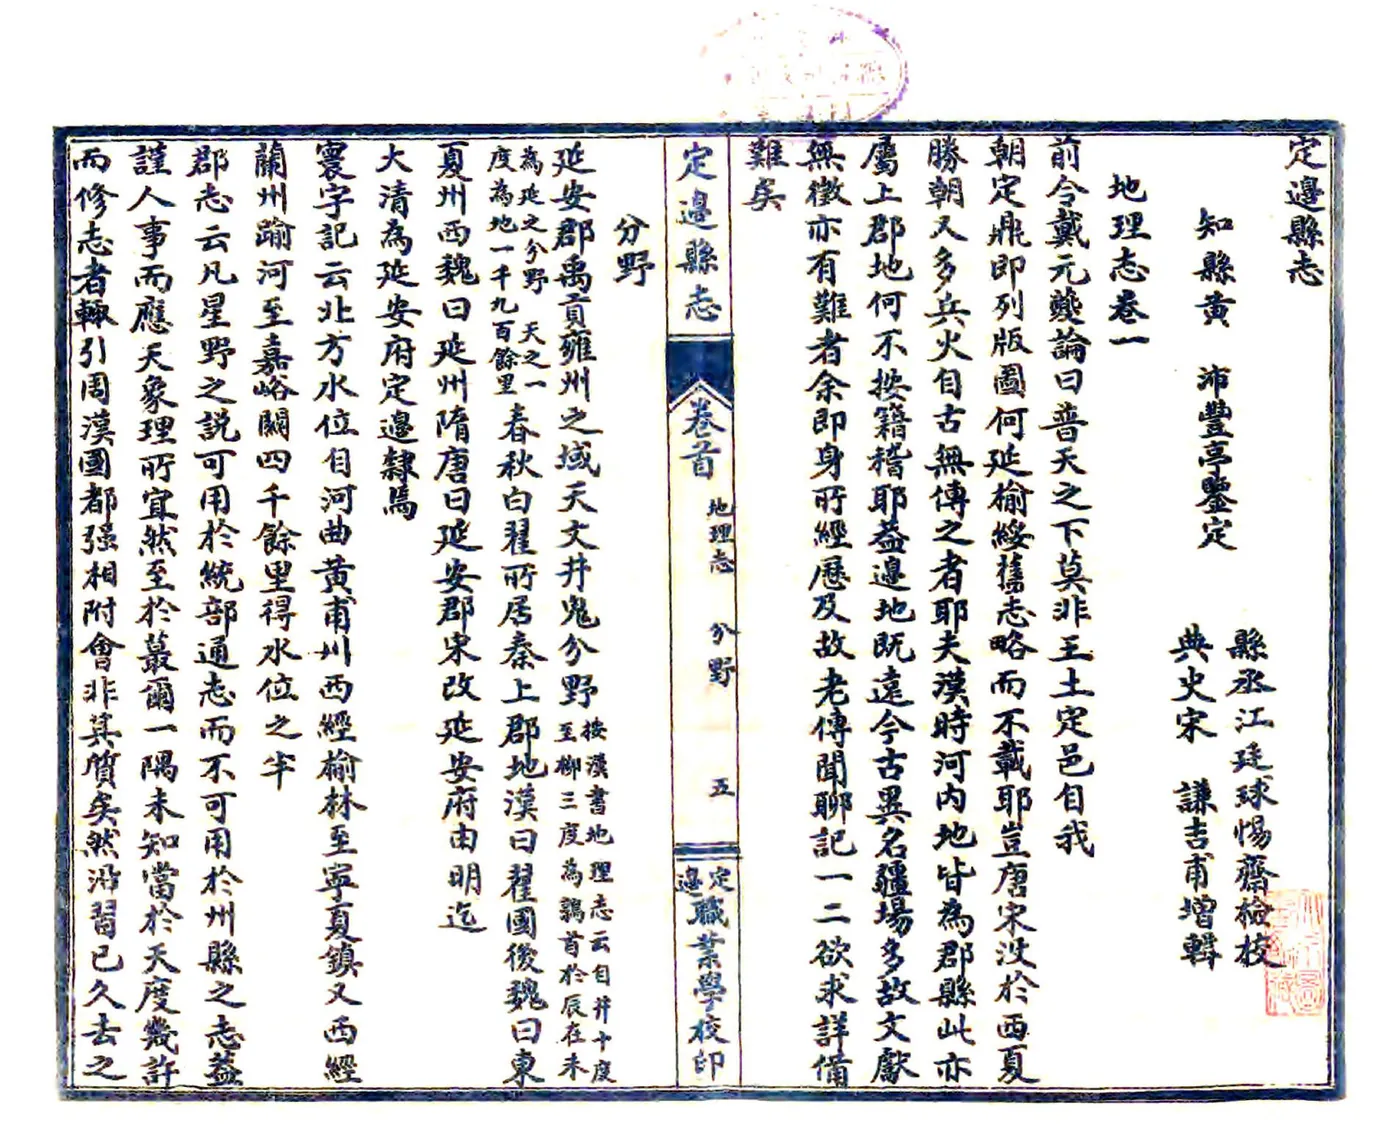 定邊縣志
知縣黃　沛豐亭鑒定
縣丞江廷球惕齋檢校
典史宋　謙吉甫增輯
地理志卷一
前令戴元夔論曰普天之下莫非王土定邑自我
朝定鼎即列版圖何延榆綏舊志略而不載耶豈唐宋沒於西夏
勝朝又多兵火自古無傳之者耶夫漢時河內地皆為郡縣此亦
屬上郡地何不按籍稽耶葢邊地既遠今古異名疆場多故文獻
無徵亦有難者余即身所經歷及故老傳聞聊記一二欲求詳備
難矣
定邊縣志
卷首
地理志　分野　五
定邊職業學校印
分野
延安郡禹貢雍州之域天文井鬼分野按漢書地理志云自井十度
至柳三度為鶉首於辰在未
為延之分野　天之一
度為地一千九百餘里春秋白翟所居秦上郡地漢曰翟國後魏曰東
夏州西魏曰延州隋唐曰延安郡宋改延安府由明迄
大清為延安府定邊隸焉
寰宇記云北方水位自河曲黃甫川西經榆林至寧夏鎮又西經
蘭州踰河至嘉峪關四千餘里得水位之半
郡志云凡星野之説可用於統部通志而不可用於州縣之志葢
謹人事而應天象理所宜然至於蕞爾一隅未知當於天度幾許
而修志者輙引周漢國都强相附會非其質矣然沿習已久去之